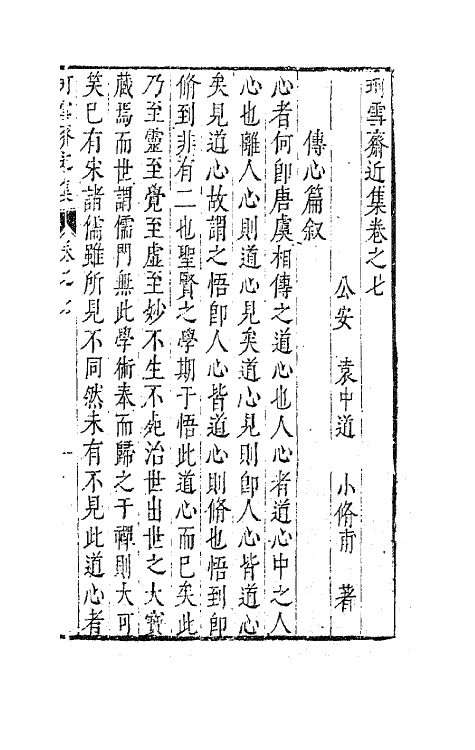 珂雪齋近集卷之七
公安 袁中道 小脩甫 著
傳心篇叙
心者何卽唐虞相傳之道心也人心者道心中之人
心也離人心則道心見矣道心見則卽人心皆道心
矣見道心故謂之悟卽人心皆道心則脩也悟到卽
脩到非有二也聖賢之學期于悟此道心而已矣此
乃至靈至覺至虛至妙不生不死治世出世之大寶
藏焉而世謂儒門無此學術奉而歸之于禪則大可
笑已有宋諸儒雖所見不同然未有不見此道心者
珂雪齋近集 卷之七 一